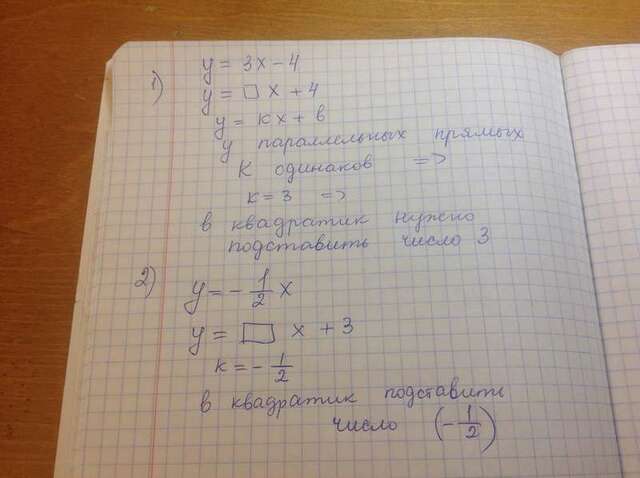 1) y = 3x - 4
y = □ x + 4
y = кx + в
у параллельных прямых
К одинаков =>
к = 3 =>
в квадратик нужно
подставить число 3
2) y = - 1/2 x
y = □ x + 3
к = - 1/2
в квадратик подставить
число (- 1/2)